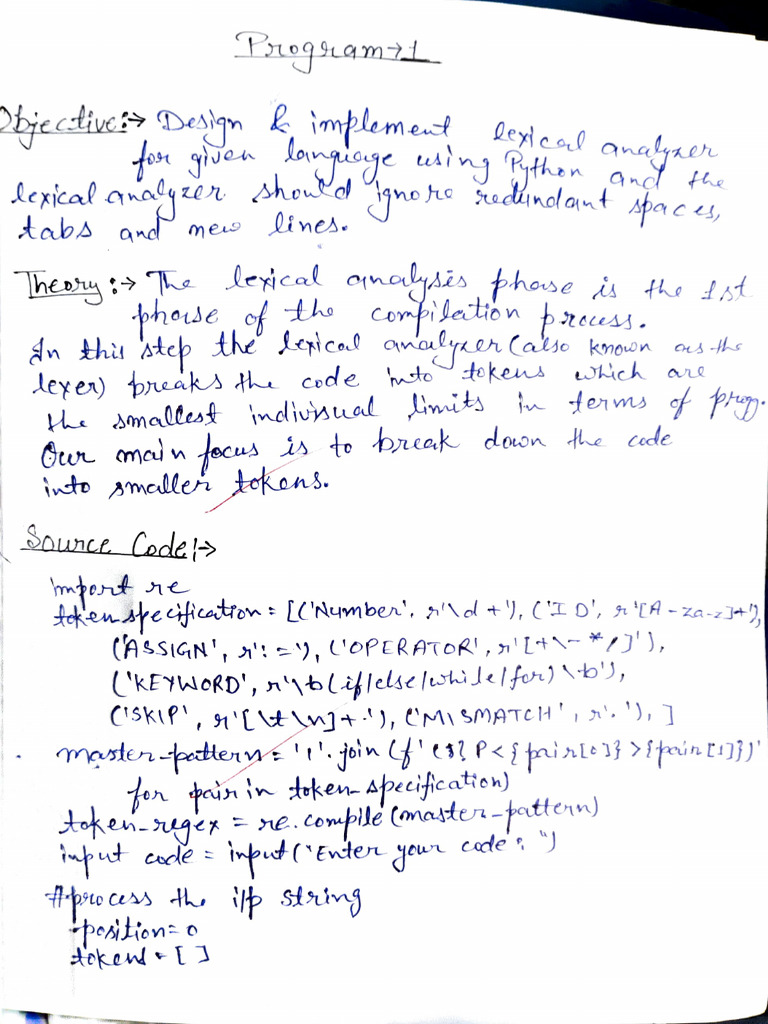 Program→1
Objective:→ Design & implement lexical analyzer
for given language using Python and the
lexical analyzer should ignore redundant spaces,
tabs and new lines.
Theory:→ The lexical analysis phase is the 1st
phase of the compilation process.
In this step the lexical analyzer (also known as the
lexer) breaks the code into tokens which are
the smallest indivisual limits in terms of prog.
Our main focus is to break down the code
into smaller tokens.
Source Code:→
import re
token_specification = [('Number', r'\d+'), ('ID', r'[A-Za-z]+'),
('ASSIGN', r':='), ('OPERATOR', r'[+\-*/]'),
('KEYWORD', r'\b(if/else/while/for)\b'),
('SKIP', r'[\t\n]+.'), ('MISMATCH', r'.'), ]
master-pattern = '|'.join(f'(s?P<{pair[0]}>{pair[1]})'
for pair in token-specification)
token_regex = re.compile(master-pattern)
input code = input("Enter your code: ")
#process the i/p string
position=0
tokens=[]